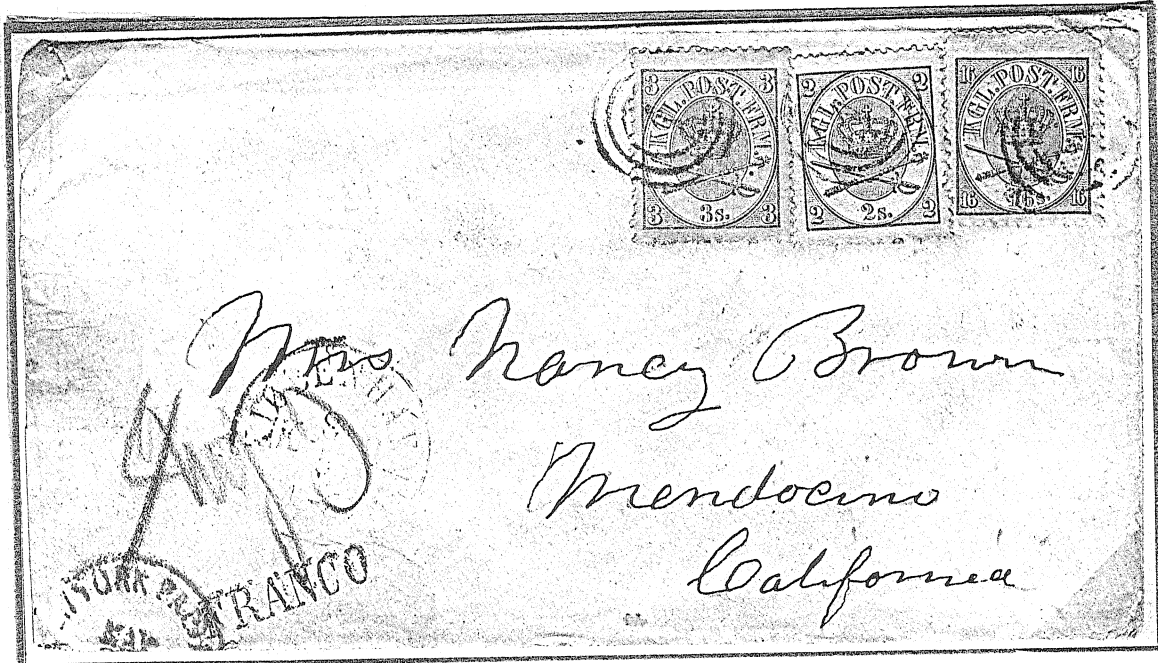 3 KGL.POST.FRM. 3
3 3s. 3
2 KGL.POST.FRM. 2
2 2s. 2
16 KGL.POST.FRM. 16
16 16s. 16
Mrs Nancy Brown
Mendocino
California
FRANCO
YORK